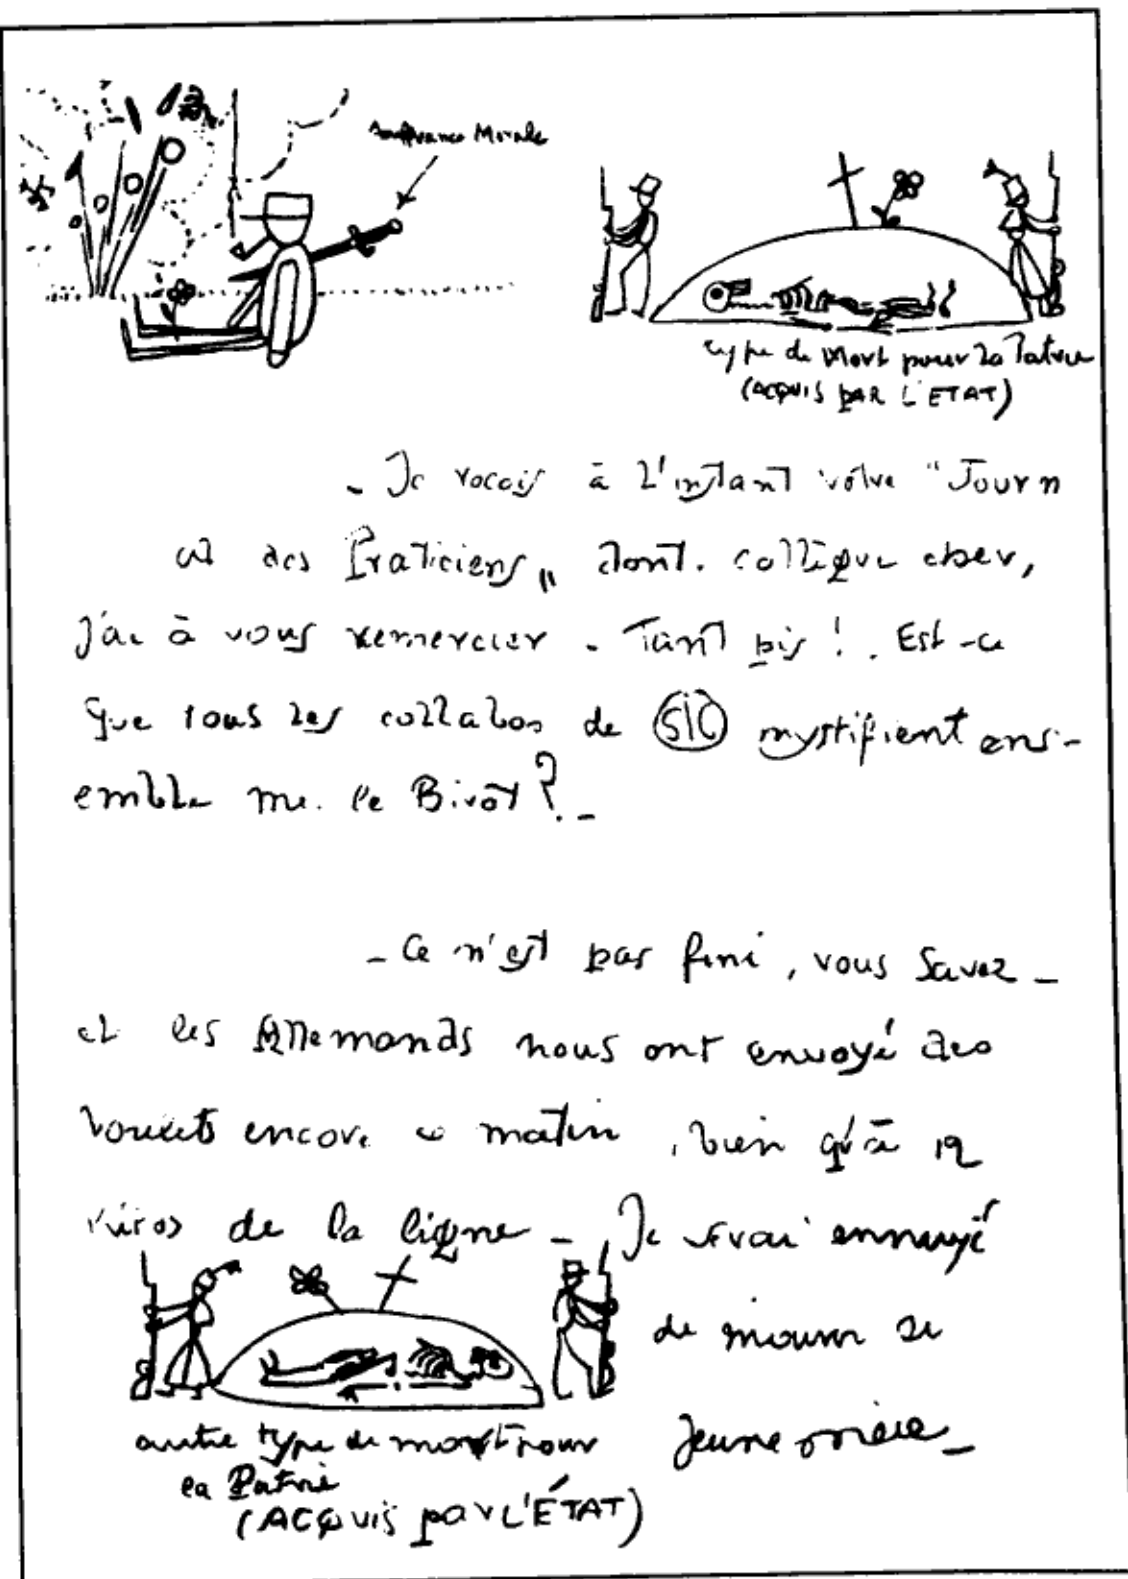 Souffrance Morale
type de Mort pour la Patrie
(ACQUIS PAR L'ETAT)
- Je reçois à l'instant votre "Journ
al des Praticiens" dont. collègue cher,
j'ai à vous remercier - Tant pis !. Est-ce
que tous les collabos de SIC mystifient ens-
emble me. Pe Birot ?. -
- Ce n'est pas fini, vous Savez -
et les Allemands nous ont envoyé des
encore ce matin, bien qu'à 12
de la ligne - Je serai ennuyé
de mourir si
autre type de mort pour
la Patrie
Jeune
(ACQUIS par L'ÉTAT)